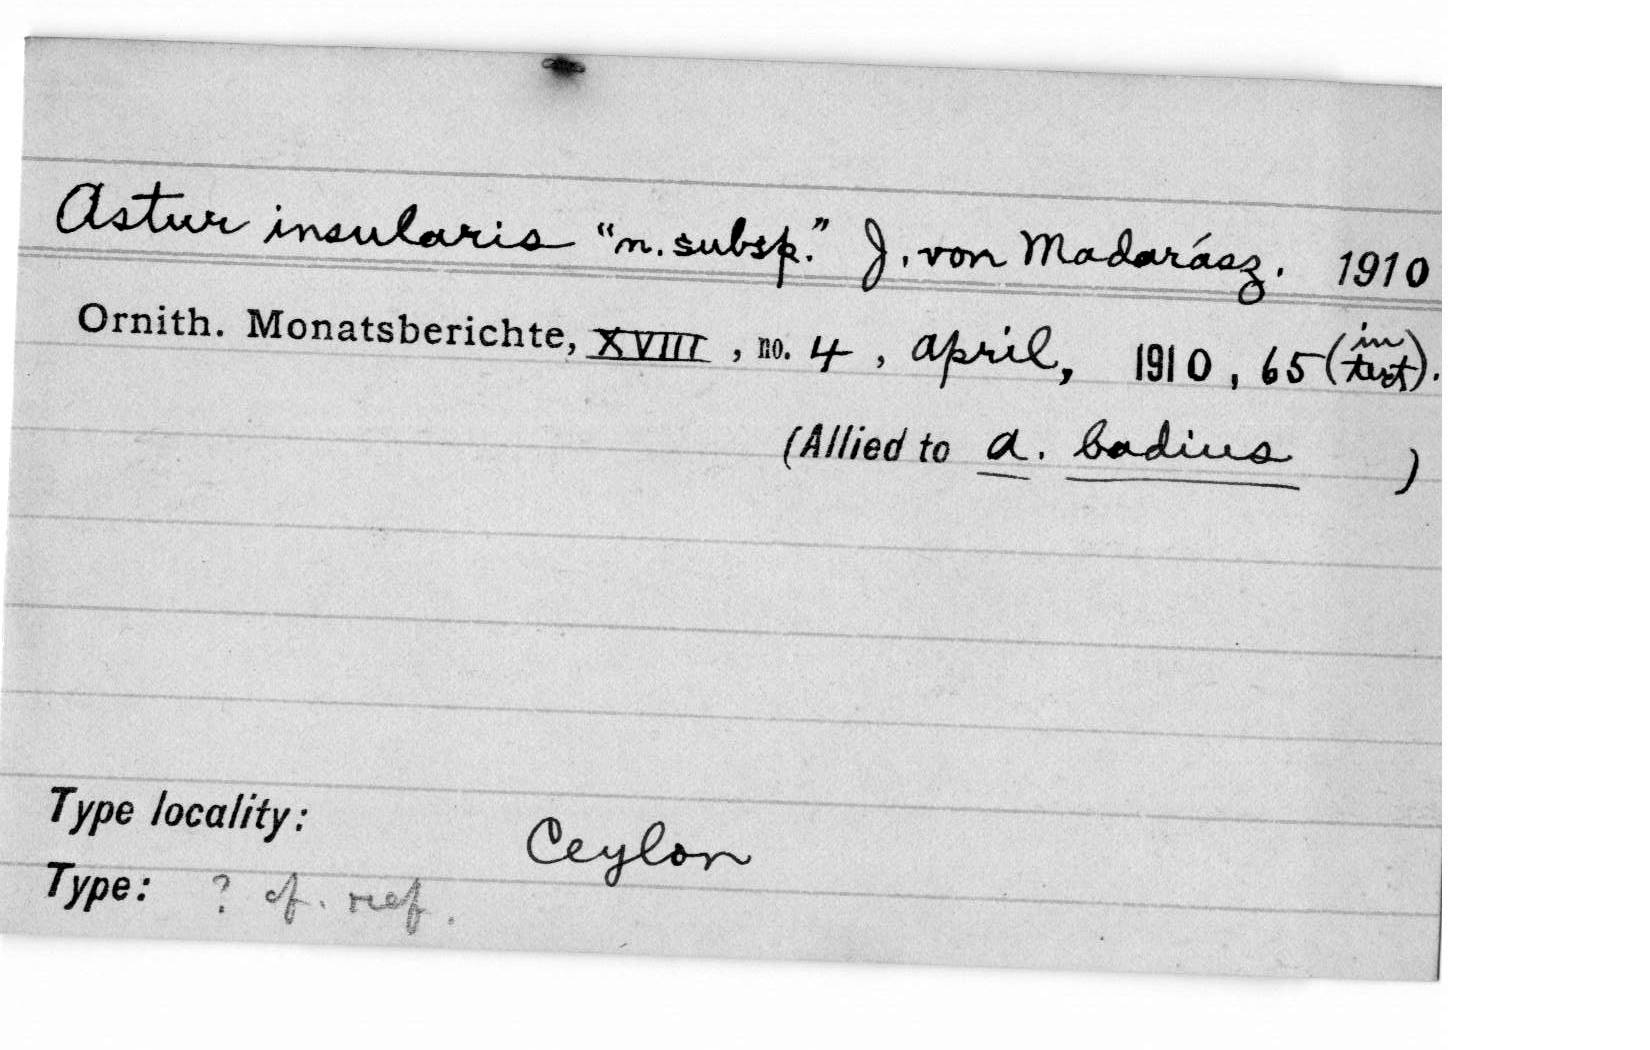 Astur insularis "n. subsp." J. von Madarász. 1910
Ornith. Monatsberichte, XVIII, no. 4, April, 1910, 65 (in text).
(Allied to A. badius )
Type locality: Ceylon
Type: ? cf. ref.